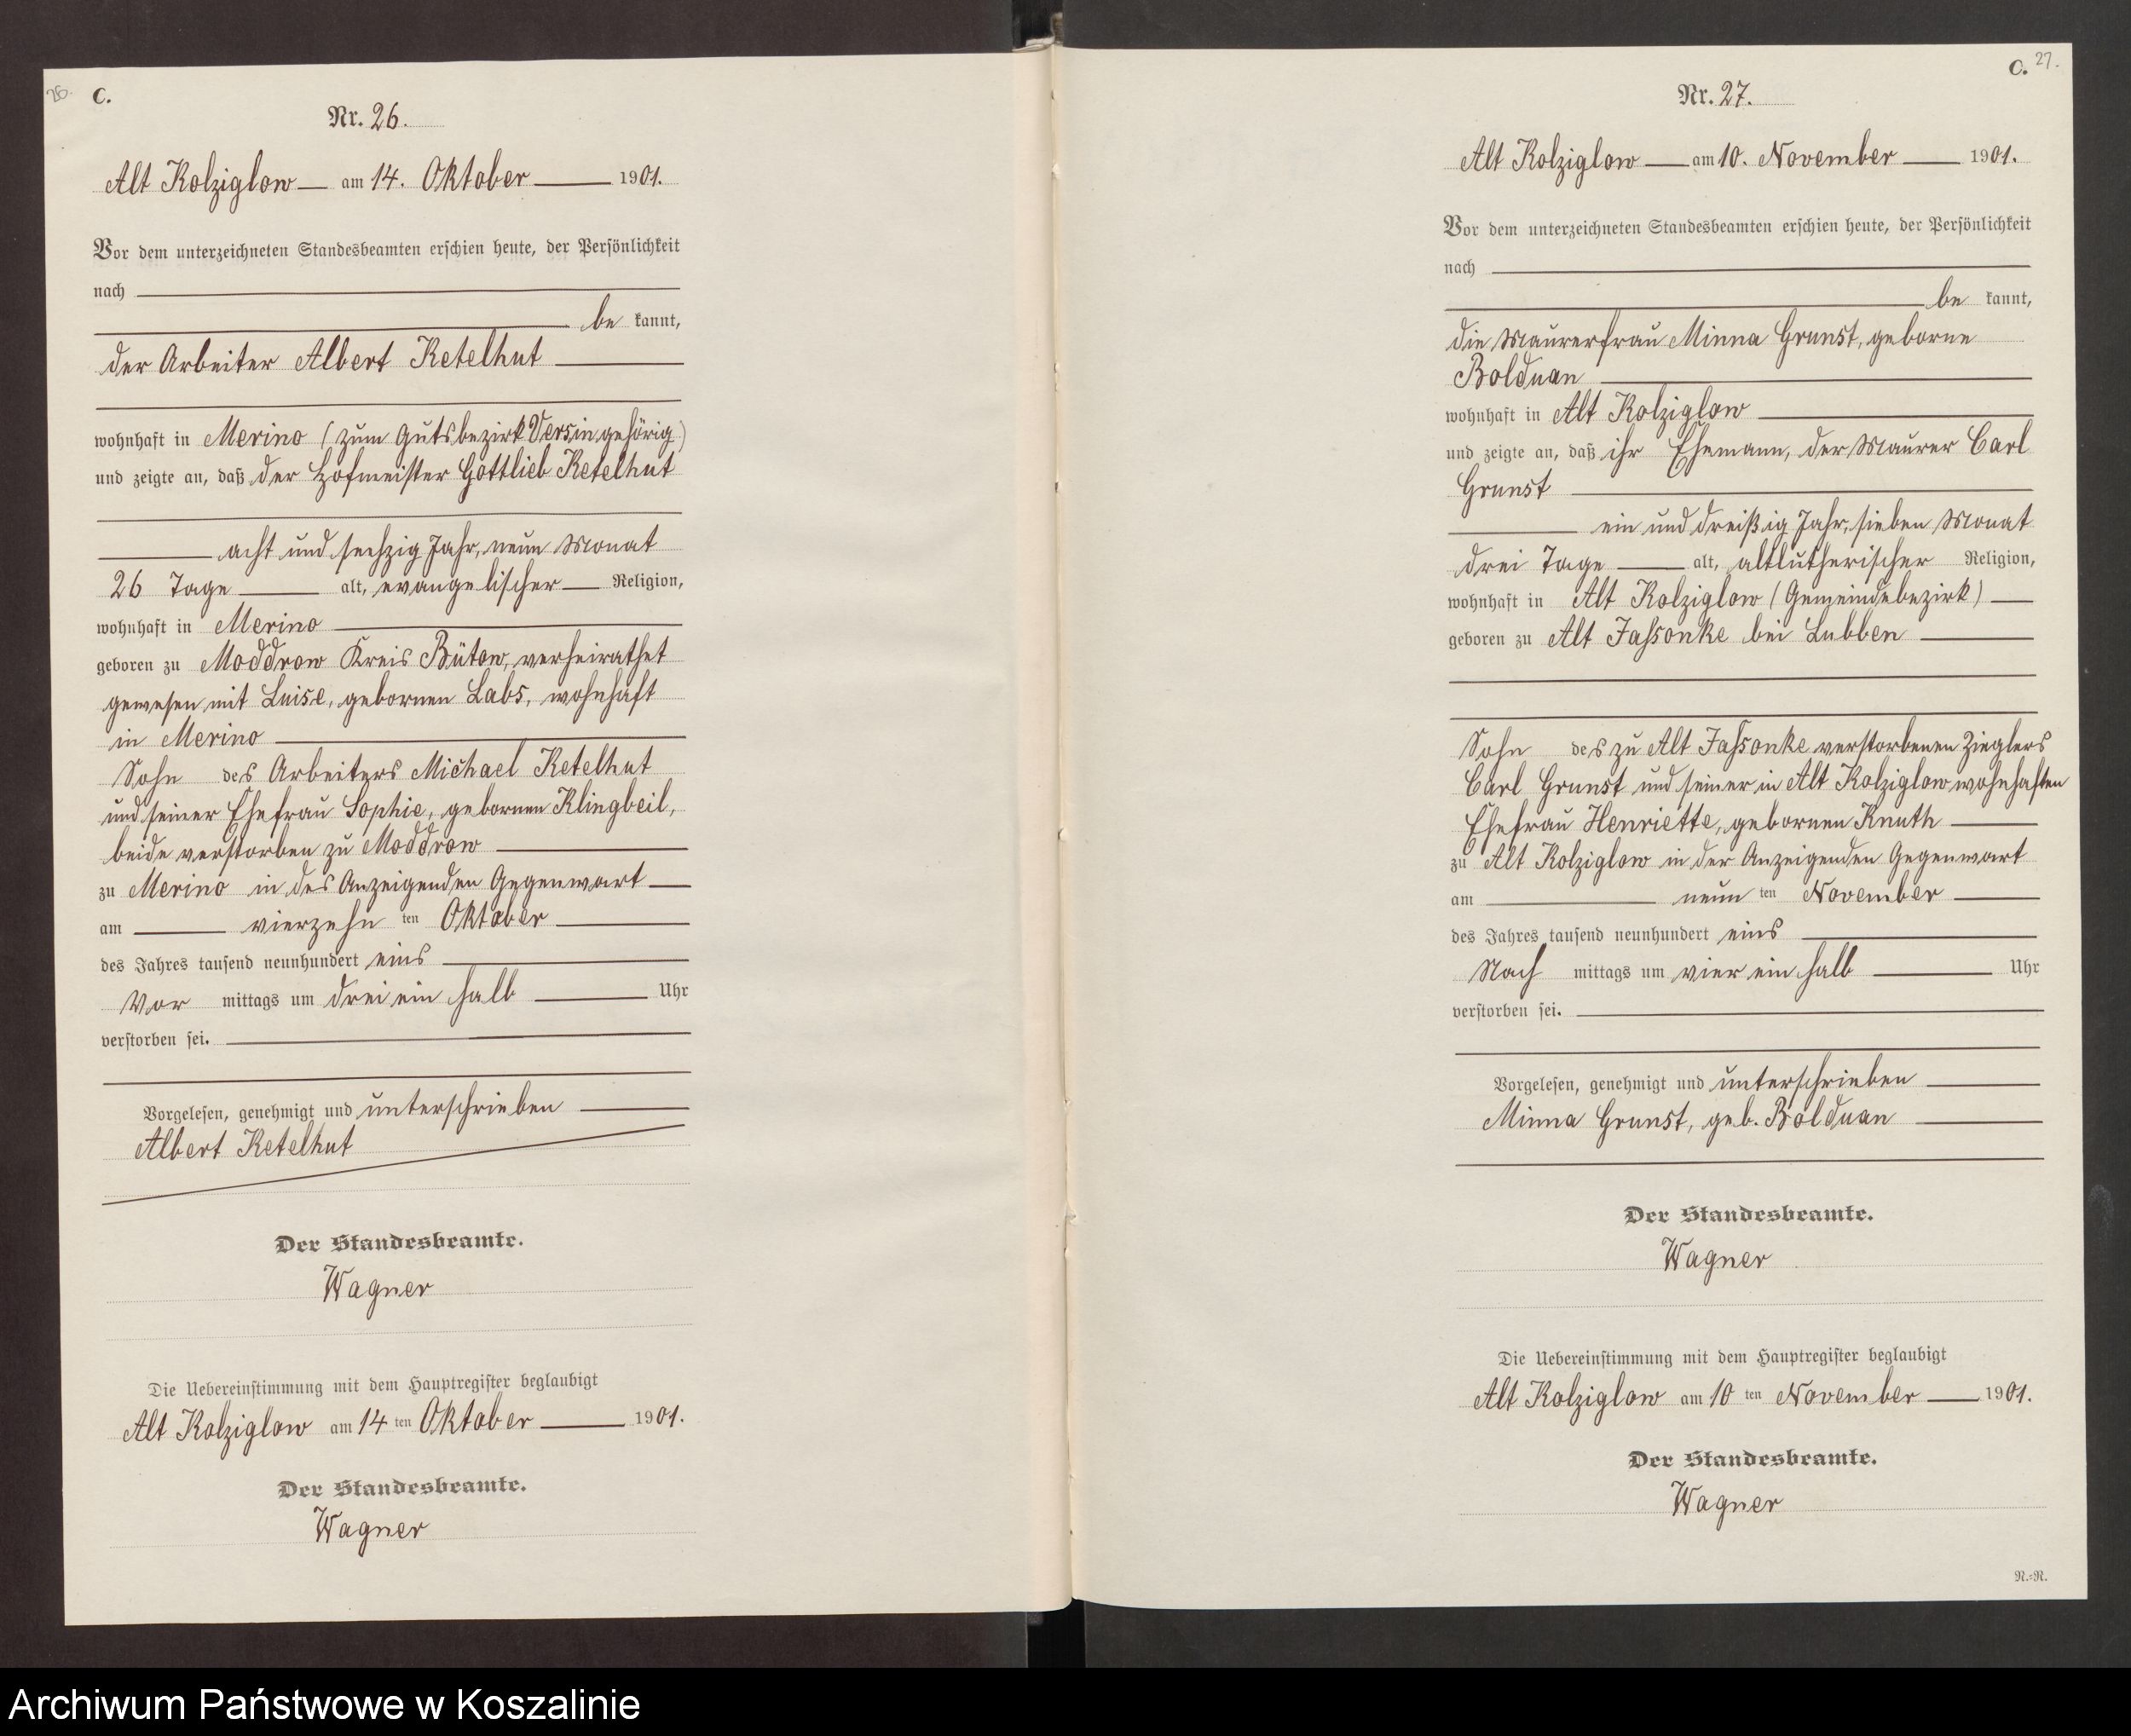 26.
C.
Nr. 26.
Alt Kolziglow am 14. Oktober 1901.
Vor dem unterzeichneten Standesbeamten erschien heute, der Persönlichkeit
nach
be kannt,
der Arbeiter Albert Ketelhut
wohnhaft in Merino (zum Gutsbezirk Versin gehörig)
und zeigte an, daß der Hofmeister Gottlieb Ketelhut
acht und sechzig Jahr, neun Monat
26 Tage alt, evangelischer Religion,
wohnhaft in Merino
geboren zu Moddrow Kreis Bütow, verheirathet
gewesen mit Luise, gebornen Labs, wohnhaft
in Merino
Sohn des Arbeiters Michael Ketelhut
und seiner Ehefrau Sophie, gebornen Klingbeil,
beide verstorben zu Moddrow
zu Merino in des Anzeigenden Gegenwart
am vierzehn ten Oktober
des Jahres tausend neunhundert eins
Vor mittags um drei ein halb Uhr
verstorben sei.
Vorgelesen, genehmigt und unterschrieben
Albert Ketelhut
Der Standesbeamte.
Wagner
Die Uebereinstimmung mit dem Hauptregister beglaubigt
Alt Kolziglow am 14 ten Oktober 1901.
Der Standesbeamte.
Wagner
C. 27.
Nr. 27.
Alt Kolziglow am 10. November 1901.
Vor dem unterzeichneten Standesbeamten erschien heute, der Persönlichkeit
nach
be kannt,
die Maurerfrau Minna Grunst, geborne
Bolduan
wohnhaft in Alt Kolziglow
und zeigte an, daß ihr Ehemann, der Maurer Carl
Grunst
ein und dreißig Jahr, sieben Monat
drei Tage alt, altlutherischer Religion,
wohnhaft in Alt Kolziglow (Gemeindebezirk)
geboren zu Alt Jassonke bei Lubben
Sohn des zu Alt Jassonke verstorbenen Zieglers
Carl Grunst und seiner in Alt Kolziglow wohnhaften
Ehefrau Henriette, gebornen Knuth
zu Alt Kolziglow in der Anzeigenden Gegenwart
am neun ten November
des Jahres tausend neunhundert eins
Nach mittags um vier ein halb Uhr
verstorben sei.
Vorgelesen, genehmigt und unterschrieben
Minna Grunst, geb. Bolduan
Der Standesbeamte.
Wagner
Die Uebereinstimmung mit dem Hauptregister beglaubigt
Alt Kolziglow am 10 ten November 1901.
Der Standesbeamte.
Wagner
N.=N.
Archiwum Państwowe w Koszalinie